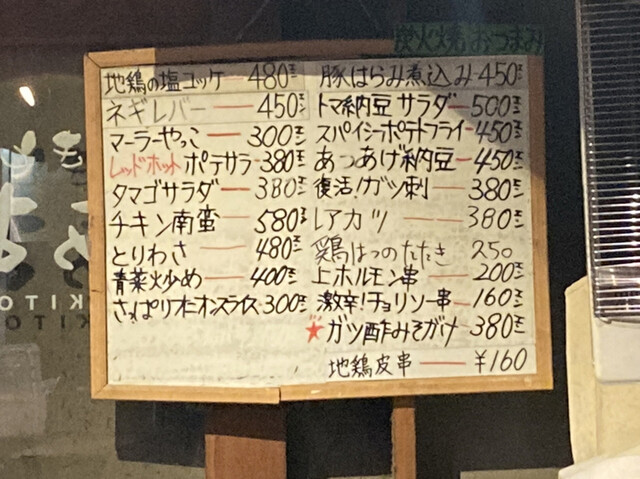 炭火焼 おつまみ
地鶏の塩ユッケ 480
ネギレバー 450
マーラーやっこ 300
レッドホット ポテサラ 380
タマゴサラダ 380
チキン南蛮 580
とりわさ 480
青菜炒め 400
さっぱりオニオンスライス 300
豚はらみ煮込み 450
トマ納豆サラダ 500
スパイシーポテトフライ 450
あつあげ納豆 450
復活!ガツ刺 380
レアカツ 380
鶏はつのたたき 250
上ホルモン串 200
激辛!チョリソー串 160
★ガツ酢みそがけ 380
地鶏皮串 ¥160